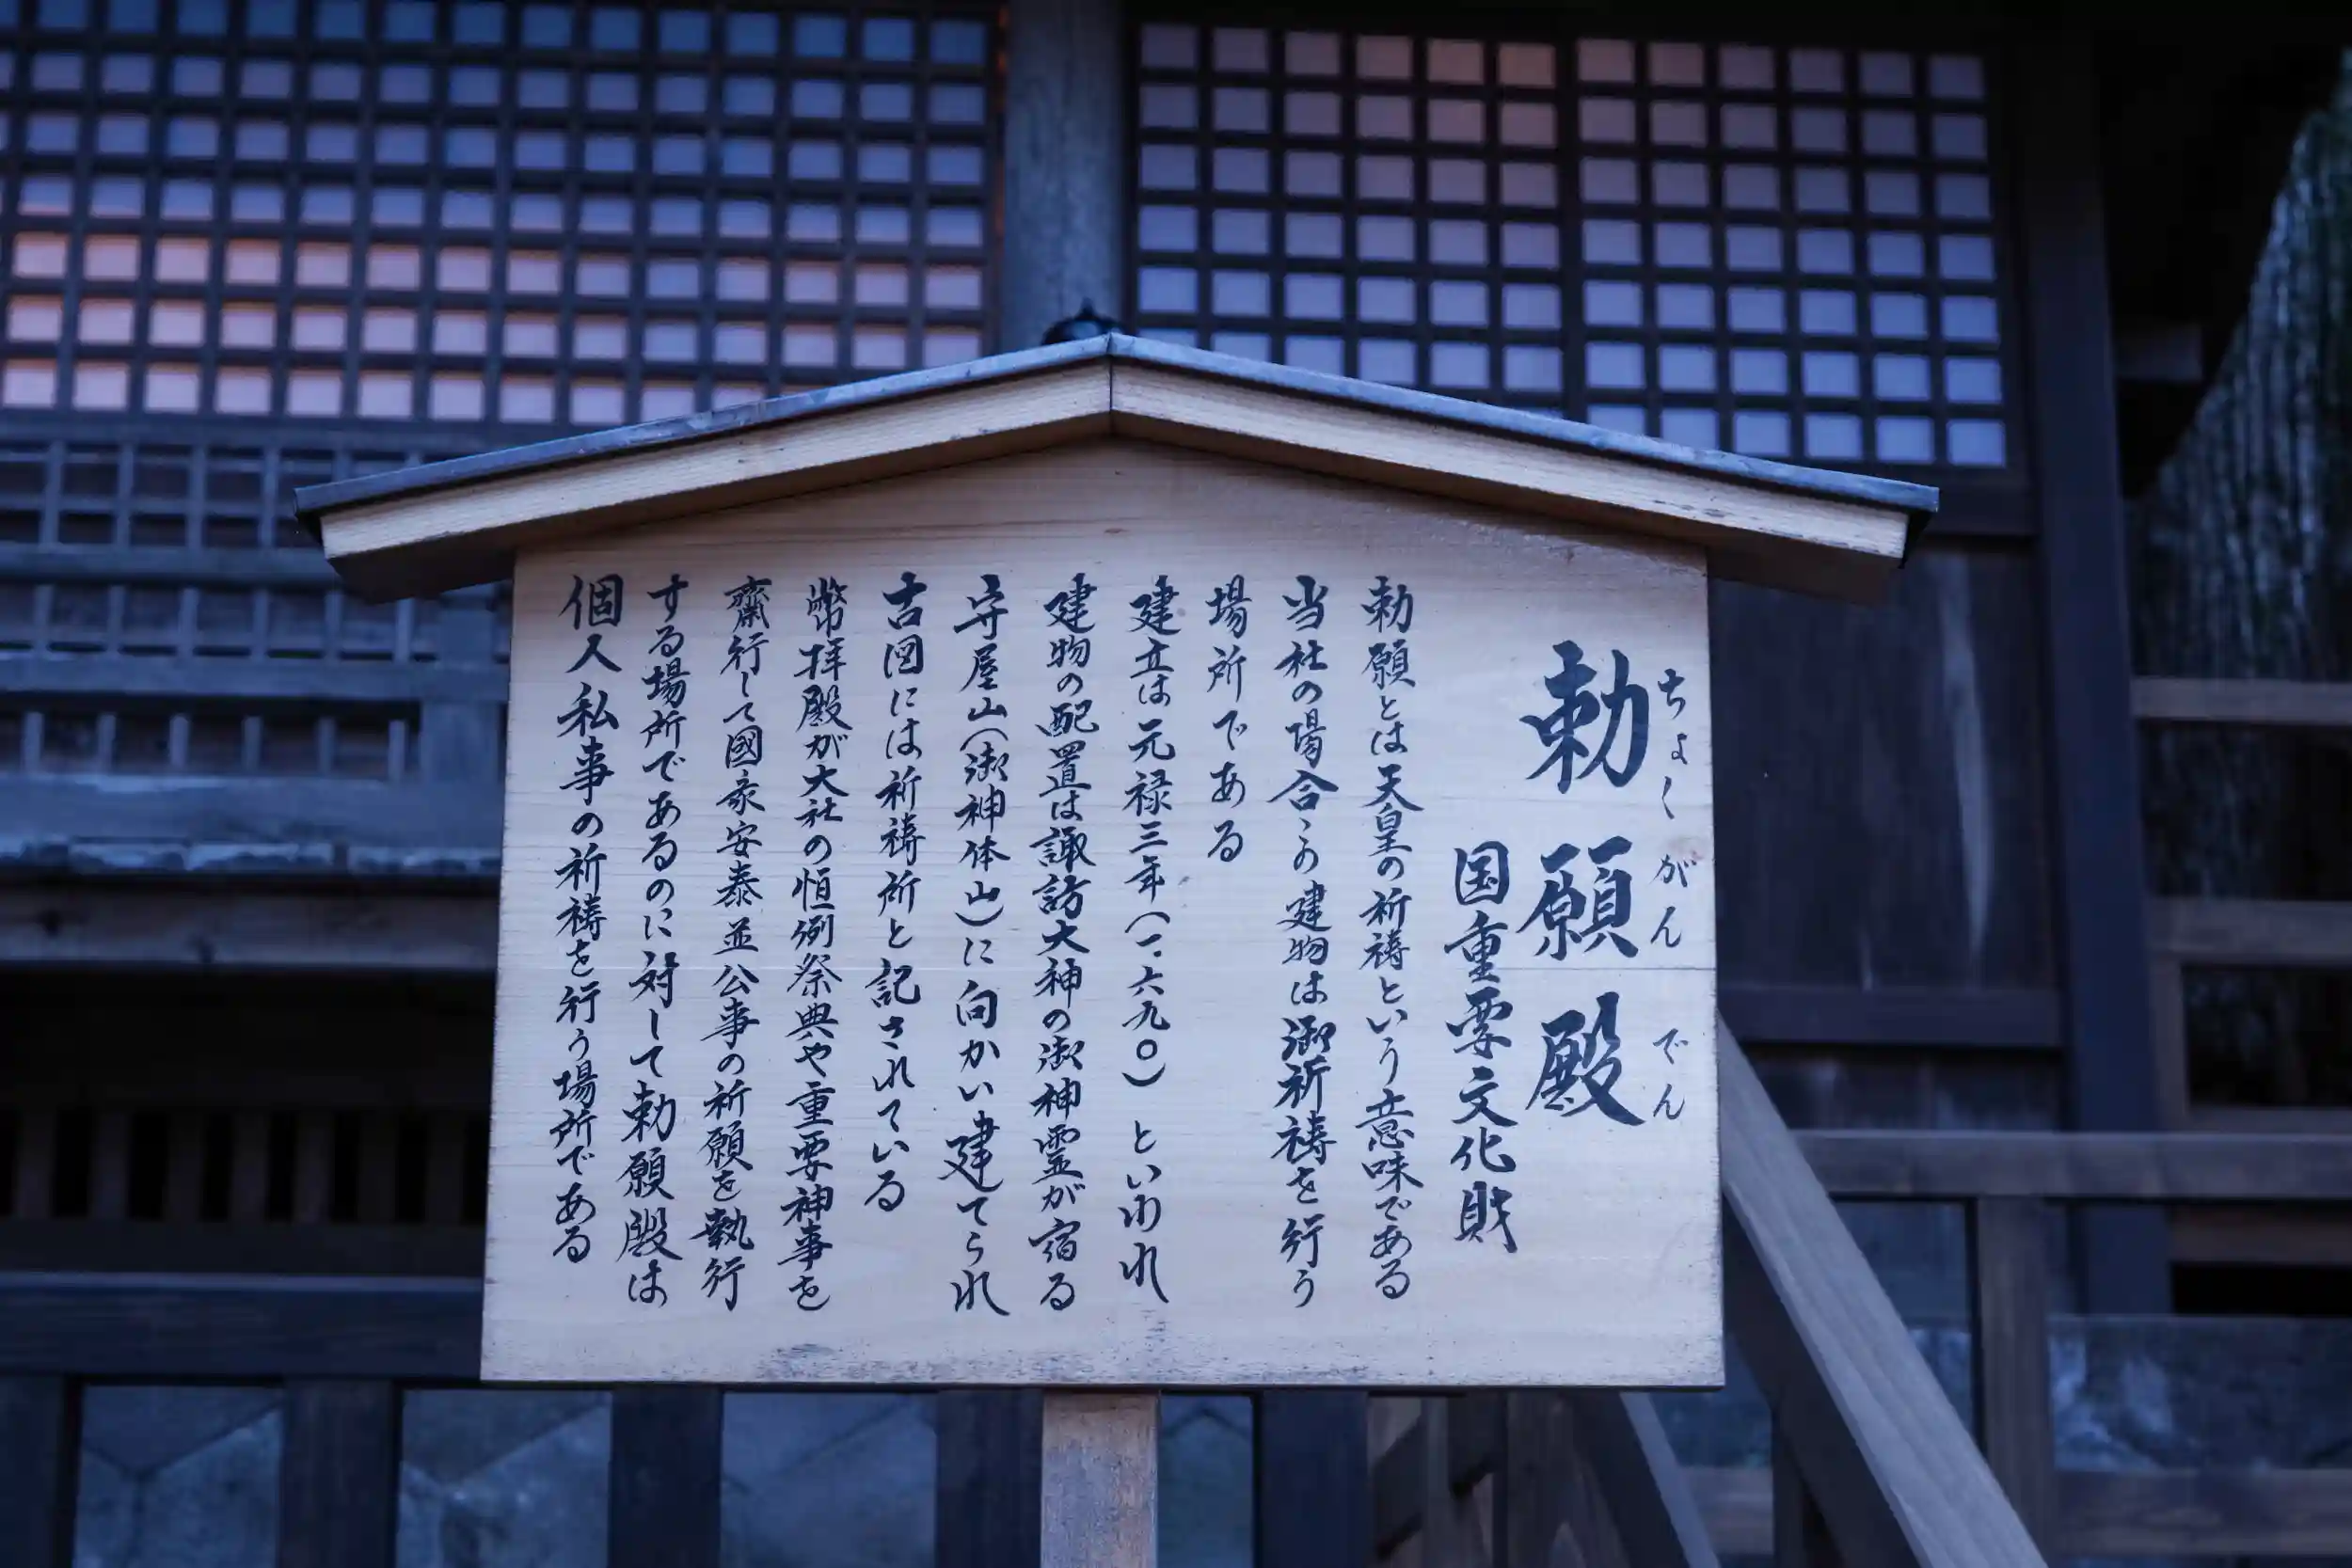 勅願殿
ちょくがんでん
国重要文化財
勅願とは天皇の祈祷という意味である
当社の場合この建物は御祈祷を行う
場所である
建立は元禄三年(一、六九〇)といわれ
建物の配置は諏訪大神の御神霊が宿る
守屋山(御神体山)に向かい建てられ
古図には祈祷所と記されている
幣拝殿が大社の恒例祭典や重要神事を
齋行して國家安泰並公事の祈願を執行
する場所であるのに対して勅願殿は
個人私事の祈祷を行う場所である